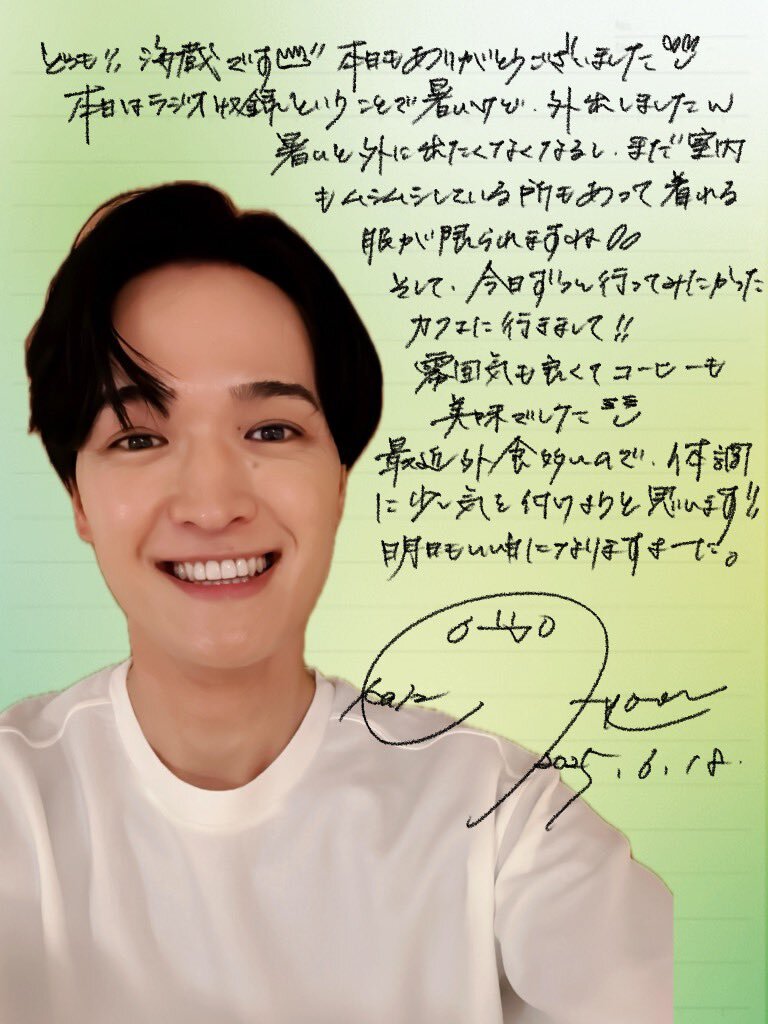 どうも!! 海蔵です 本日もありがとうございました
本日はラジオ収録ということで暑いけど、外出しましたw
暑いと外に出たくなくなるし、まだ室内
もムシムシしている所もあって着れる
服が限られますね
そして、今日ずっと行ってみたかった
カフェに行きまして!!
雰囲気も良くてコーヒーも
美味でした
最近外食多いので、体調
に少し気を付けようと思います!!
明日もいい日になりますまーた。
2025.6.18.